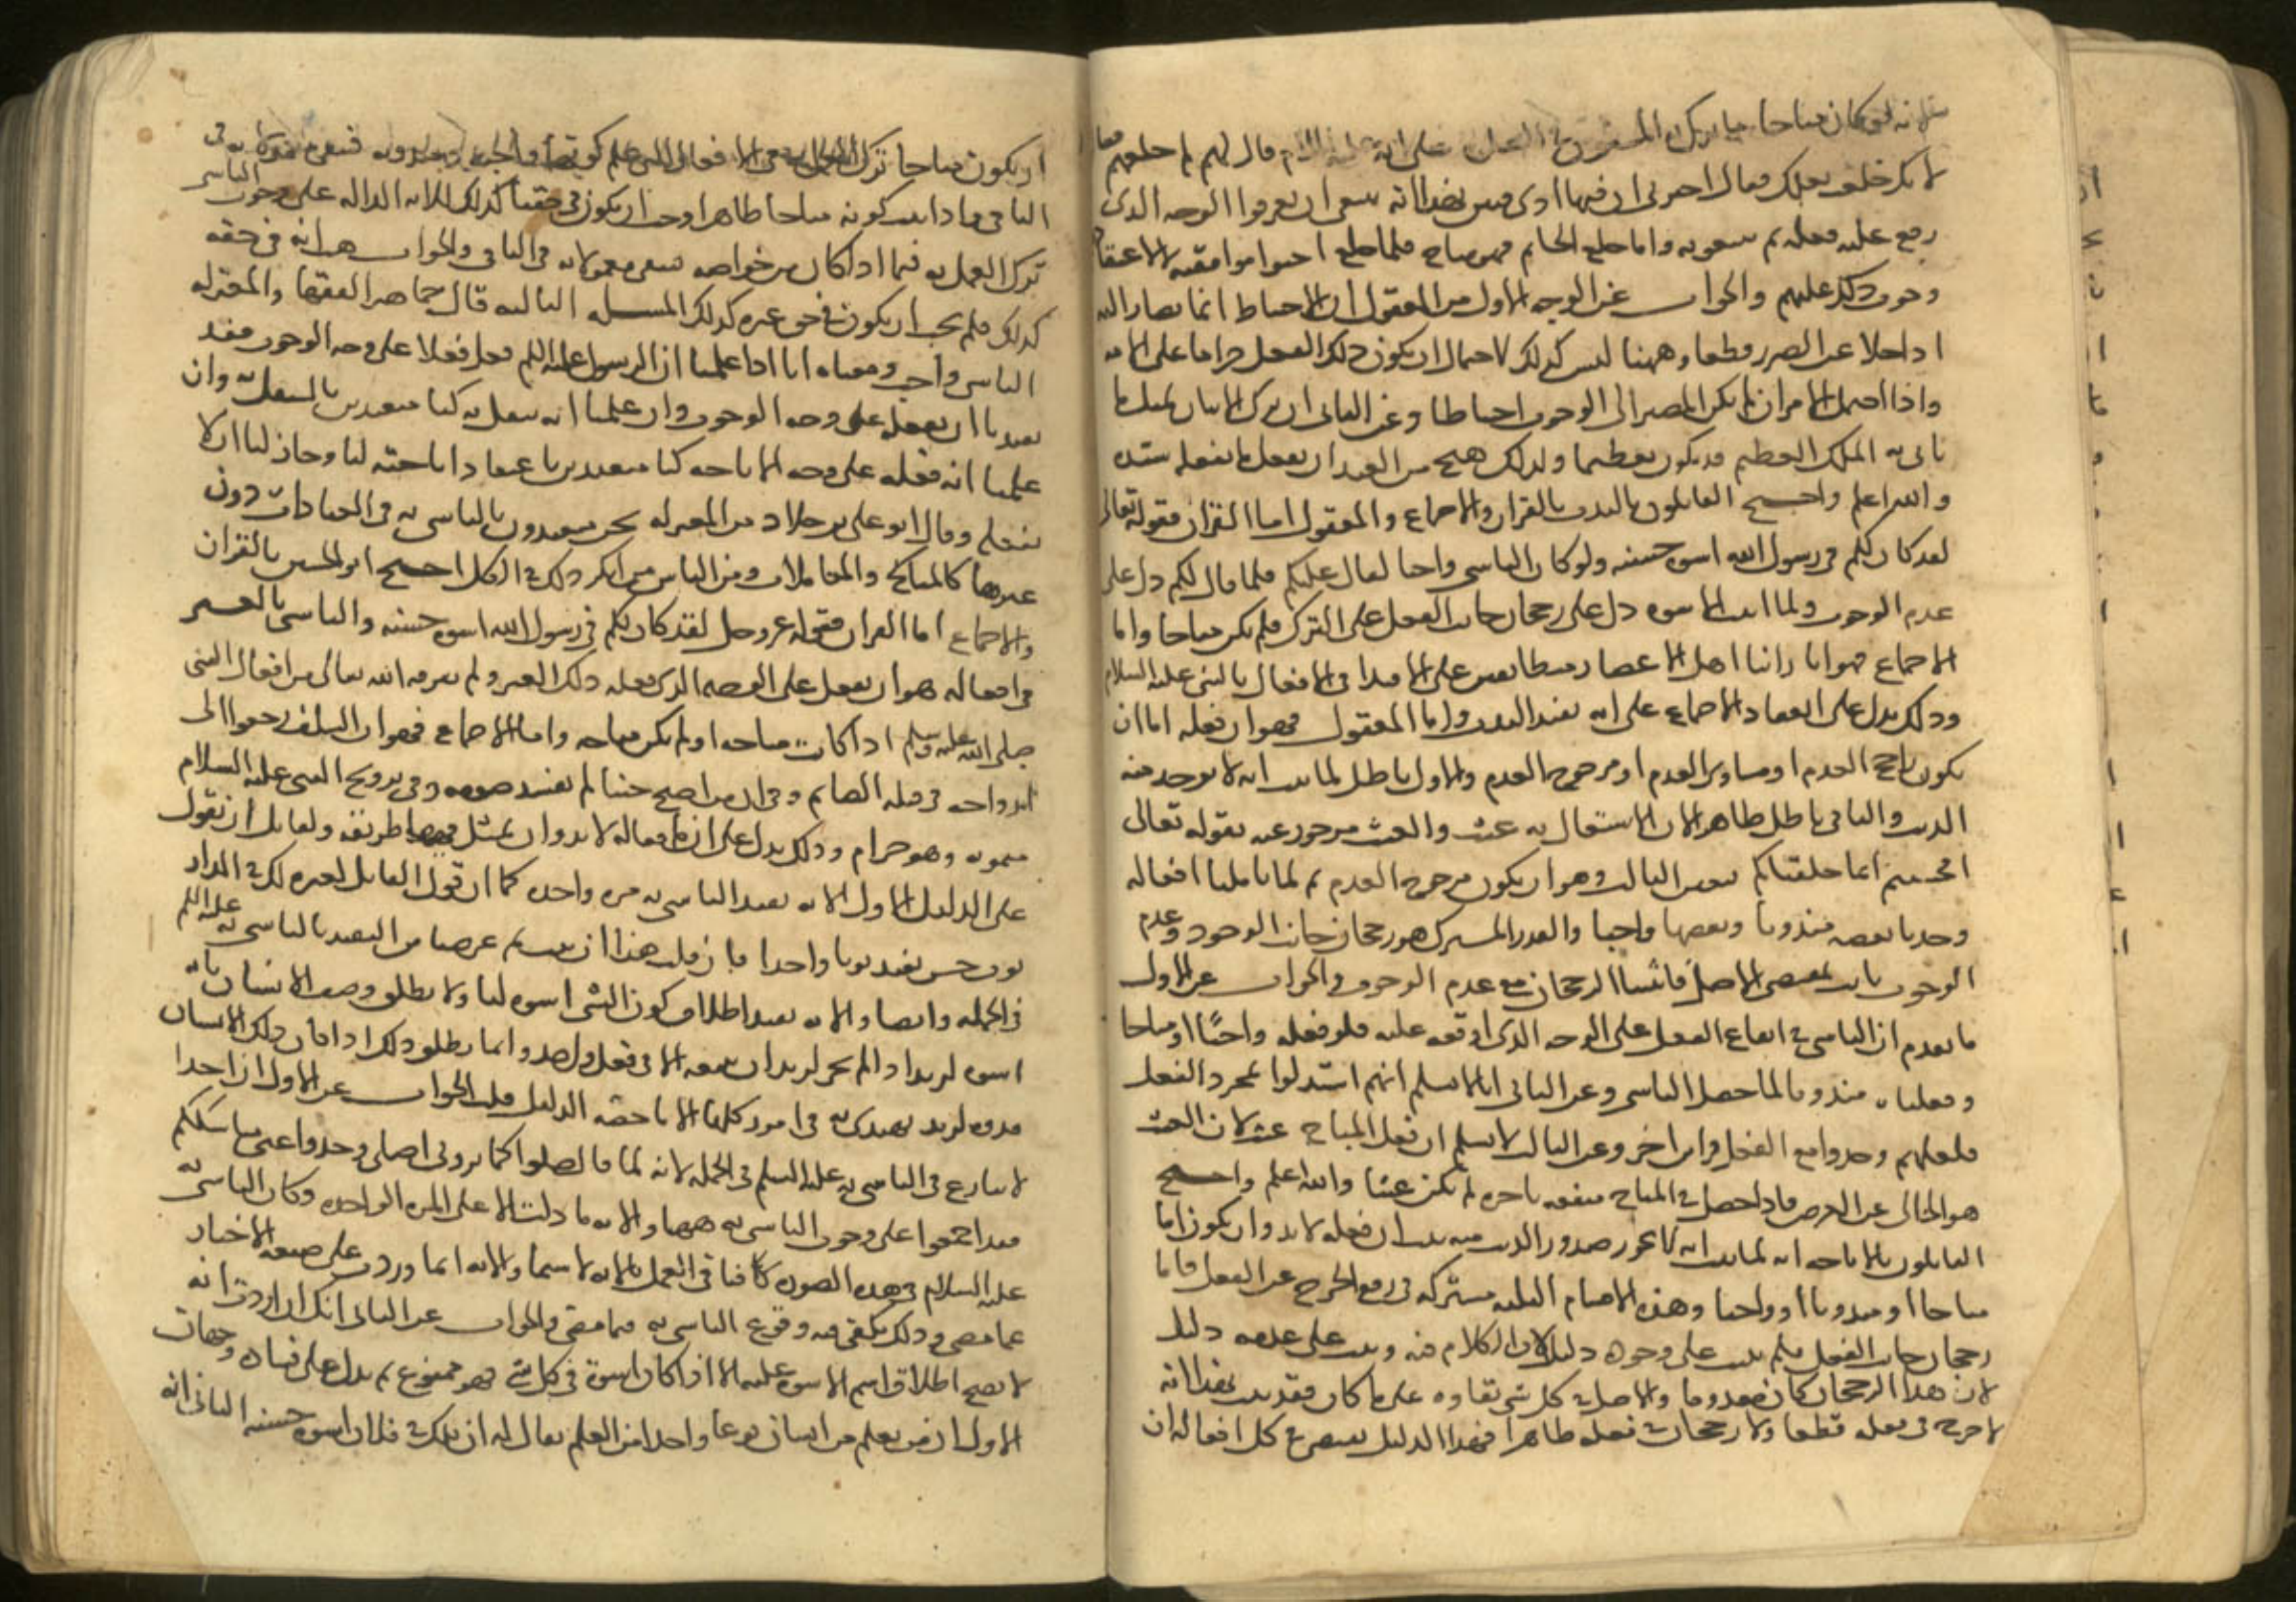 لانه لو كان مباحا ما ترك المفروض على انه عليه السلام قال لهم لم خلعتم
لا نك خلعت نعلك فقال اخبرنى ان فيها اذى فبين بهذا انه ينبغى ان يعرفوا الوجه الذى
وقع عليه فعله ثم يتبعونه واما خلع الخاتم فهو مباح فلما خلع احبوا موافقته لا لاعتقاد
وجوب ذلك عليهم والجواب عن الوجه الاول من المعقول ان الاحتياط انما يصار اليه
اذا خلا عن الضرر قطعا وههنا ليس كذلك لاحتمال ان يكون ذلك الفعل حراما على الامة
واذا احتمل الامران لم يكن المصير الى الوجوب احتياطا وعن الثانى ان ترك الاتيان بمثل ما
ياتى به الملك العظيم قد يكون تعظيما ولذلك يقبح من العبد ان يفعل ما يفعله سيده
والله اعلم واحتج القايلون بالندب بالقران والاجماع والمعقول اما القران فقوله تعالى
لقد كان لكم فى رسول الله اسوة حسنه ولو كان التاسى واجبا لقال عليكم فلما قال لكم دل على
عدم الوجوب ولما اثبت الاسوه دل على رجحان جانب الفعل على الترك فلم يكن مباحا واما
الاجماع فهو انا راينا اهل الاعصار متطابقين على الاقتدا فى الافعال بالنبى عليه السلام
وذلك يدل على انعقاد الاجماع على انه يفيد الندب واما المعقول فهو ان فعله اما ان
يكون راجح العدم او مساوى العدم او مرجوح العدم والاول باطل لما ثبت انه لا يوجد منه
الذنب والثانى باطل ظاهرا لان الاشتغال به عبث والعبث مزجور عنه بقوله تعالى
افحسبتم انما خلقناكم فتعين الثالث وهو ان يكون مرجوح العدم ثم لما تاملنا افعاله
وجدنا بعضه مندوبا وبعضها واجبا والقدر المشترك هو رجحان جانب الوجود وعدم
الوجوب ثابت بمقتضى الاصل فاثبتنا الرجحان مع عدم الوجوب والجواب عن الاول
ما تقدم ان التاسى فى ايقاع الفعل على الوجه الذى اوقعه عليه فلو فعله واجبا او مباحا
وفعلناه مندوبا لما حصل التاسى وعن الثانى انا لا نسلم انهم استدلوا بمجرد الفعل
فلعلهم وجدوا مع الفعل قراين اخر وعن الثالث لا نسلم ان فعل المباح عبث لان العبث
هو الخالى عن الغرض فاذا حصل فى المباح منفعه ناجزه لم يكن عبثا والله اعلم واحتج
القايلون بالاباحه انه لما ثبت انه لا يجوز صدور الذنب منه ثبت ان فعله لا بد وان يكون اما
مباحا او مندوبا او واجبا وهذه الاقسام الثلثه مشتركه فى رفع الحرج عن الفعل فاما
رجحان جانب الفعل فلم يثبت على وجوده دليل لان الكلام فيه وثبت على عدمه دليل
لان هذا الرجحان كان معدوما والاصل فى كل شى بقاوه على ما كان فقد ثبت بهذا انه
لا حرج فى فعله قطعا ولا رجحان فى فعله ظاهرا فهذا الدليل يقتضى فى كل افعاله ان
ان يكون مباحا ترك العمل به فى الافعال التى علم كونها واجبه او مندوبه فبقى معمولا به فى
الباقى واذا ثبت كونه مباحا ظاهرا وجب ان يكون فى حقنا كذلك للايه الداله على وجوب التاسى
ترك العمل به فيما اذا كان من خواصه فبقى معمولا به فى الباقى والجواب هب انه فى حقه
كذلك فلم يجب ان يكون فى حق غيره كذلك المسله الثالثه قال جماهير الفقها والمعتزله
التاسى واجب ومعناه انا اذا علمنا ان الرسول عليه السلم فعل فعلا على وجه الوجوب فقد
تعبدنا ان نفعله على وجه الوجوب وان علمنا انه تنفل به كنا متعبدين بالتنفل به وان
علمنا انه فعله على وجه الاباحه كنا متعبدين باعتقاد اباحته لنا وجاز لنا ان لا
نفعله وقال ابو على بن خلاد من المعتزله نحن متعبدون بالتاسى به فى العبادات دون
غيرها كالمناكح والمعاملات ومن الناس من انكر ذلك فى الكل احتج ابو الحسين بالقران
والاجماع اما القران فقوله عز وجل لقد كان لكم فى رسول الله اسوه حسنه والتاسى بالغير
فى افعاله هو ان يفعل على الوجه الذى فعله ذلك الغير ولم يفرق الله تعالى بين افعال النبى
صلى الله عليه وسلم اذا كانت مباحه او لم تكن مباحه واما الاجماع فهو ان السلف رجعوا الى
ازواجه فى قبلة الصائم وفى ان من اصبح جنبا لم يفسد صومه وفى تزويج النبى عليه السلام
ميمونه وهو حرام وذلك يدل على ان افعاله لا بد وان يمتثل فيها طريقه ولقايل ان يقول
على الدليل الاول الايه تفيد التاسى به مره واحده كما ان قول القايل لغيره لك فى الدار
ثوب حسن يفيد ثوبا واحدا فان قلت هذا ان ثبت تم غرضنا من التعبد بالتاسى به عليه السلم
فى الجمله وايضا والايه تفيد اطلاق كون النبى اسوه لنا ولا يطلق وصف الانسان بانه
اسوه لزيد اذا لم يجز لزيد ان يتبعه الا فى فعل واحد وانما يطلق ذلك اذا كان ذلك الانسان
قدوه لزيد يقتدى به فى امور كلها الا ما خصه الدليل قلت الجواب عن الاول ان احدا
لا ينازع فى التاسى به عليه السلم فى الجمله لانه لما قال صلوا كما رايتمونى اصلى وخذوا عنى مناسككم
فقد اجمعوا على وجوب التاسى به ههنا والايه ما دلت الا على المره الواحده وكان التاسى به
عليه السلام فى هذه الصوره كافيا فى العمل بالايه لا سيما والايه انما وردت على صيغه الاخبار
عما مضى وذلك يكفى فيه وقوع التاسى به فيما مضى والجواب عن الثانى انك ان اردت انه
لا يصح اطلاق اسم الاسوه عليه الا اذا كان اسوة فى كل شى فهو ممنوع ثم يدل على فساده وجهان
الاول ان من تعلم من انسان نوعا واحدا من العلم يقال له ان لك فى فلان اسوه حسنه الثانى انه